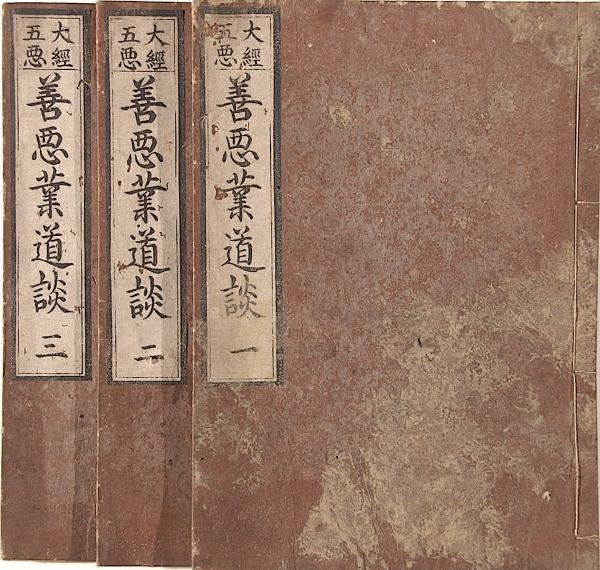 大經
五悪
善悪業道談 一
大經
五悪
善悪業道談 二
大經
五悪
善悪業道談 三